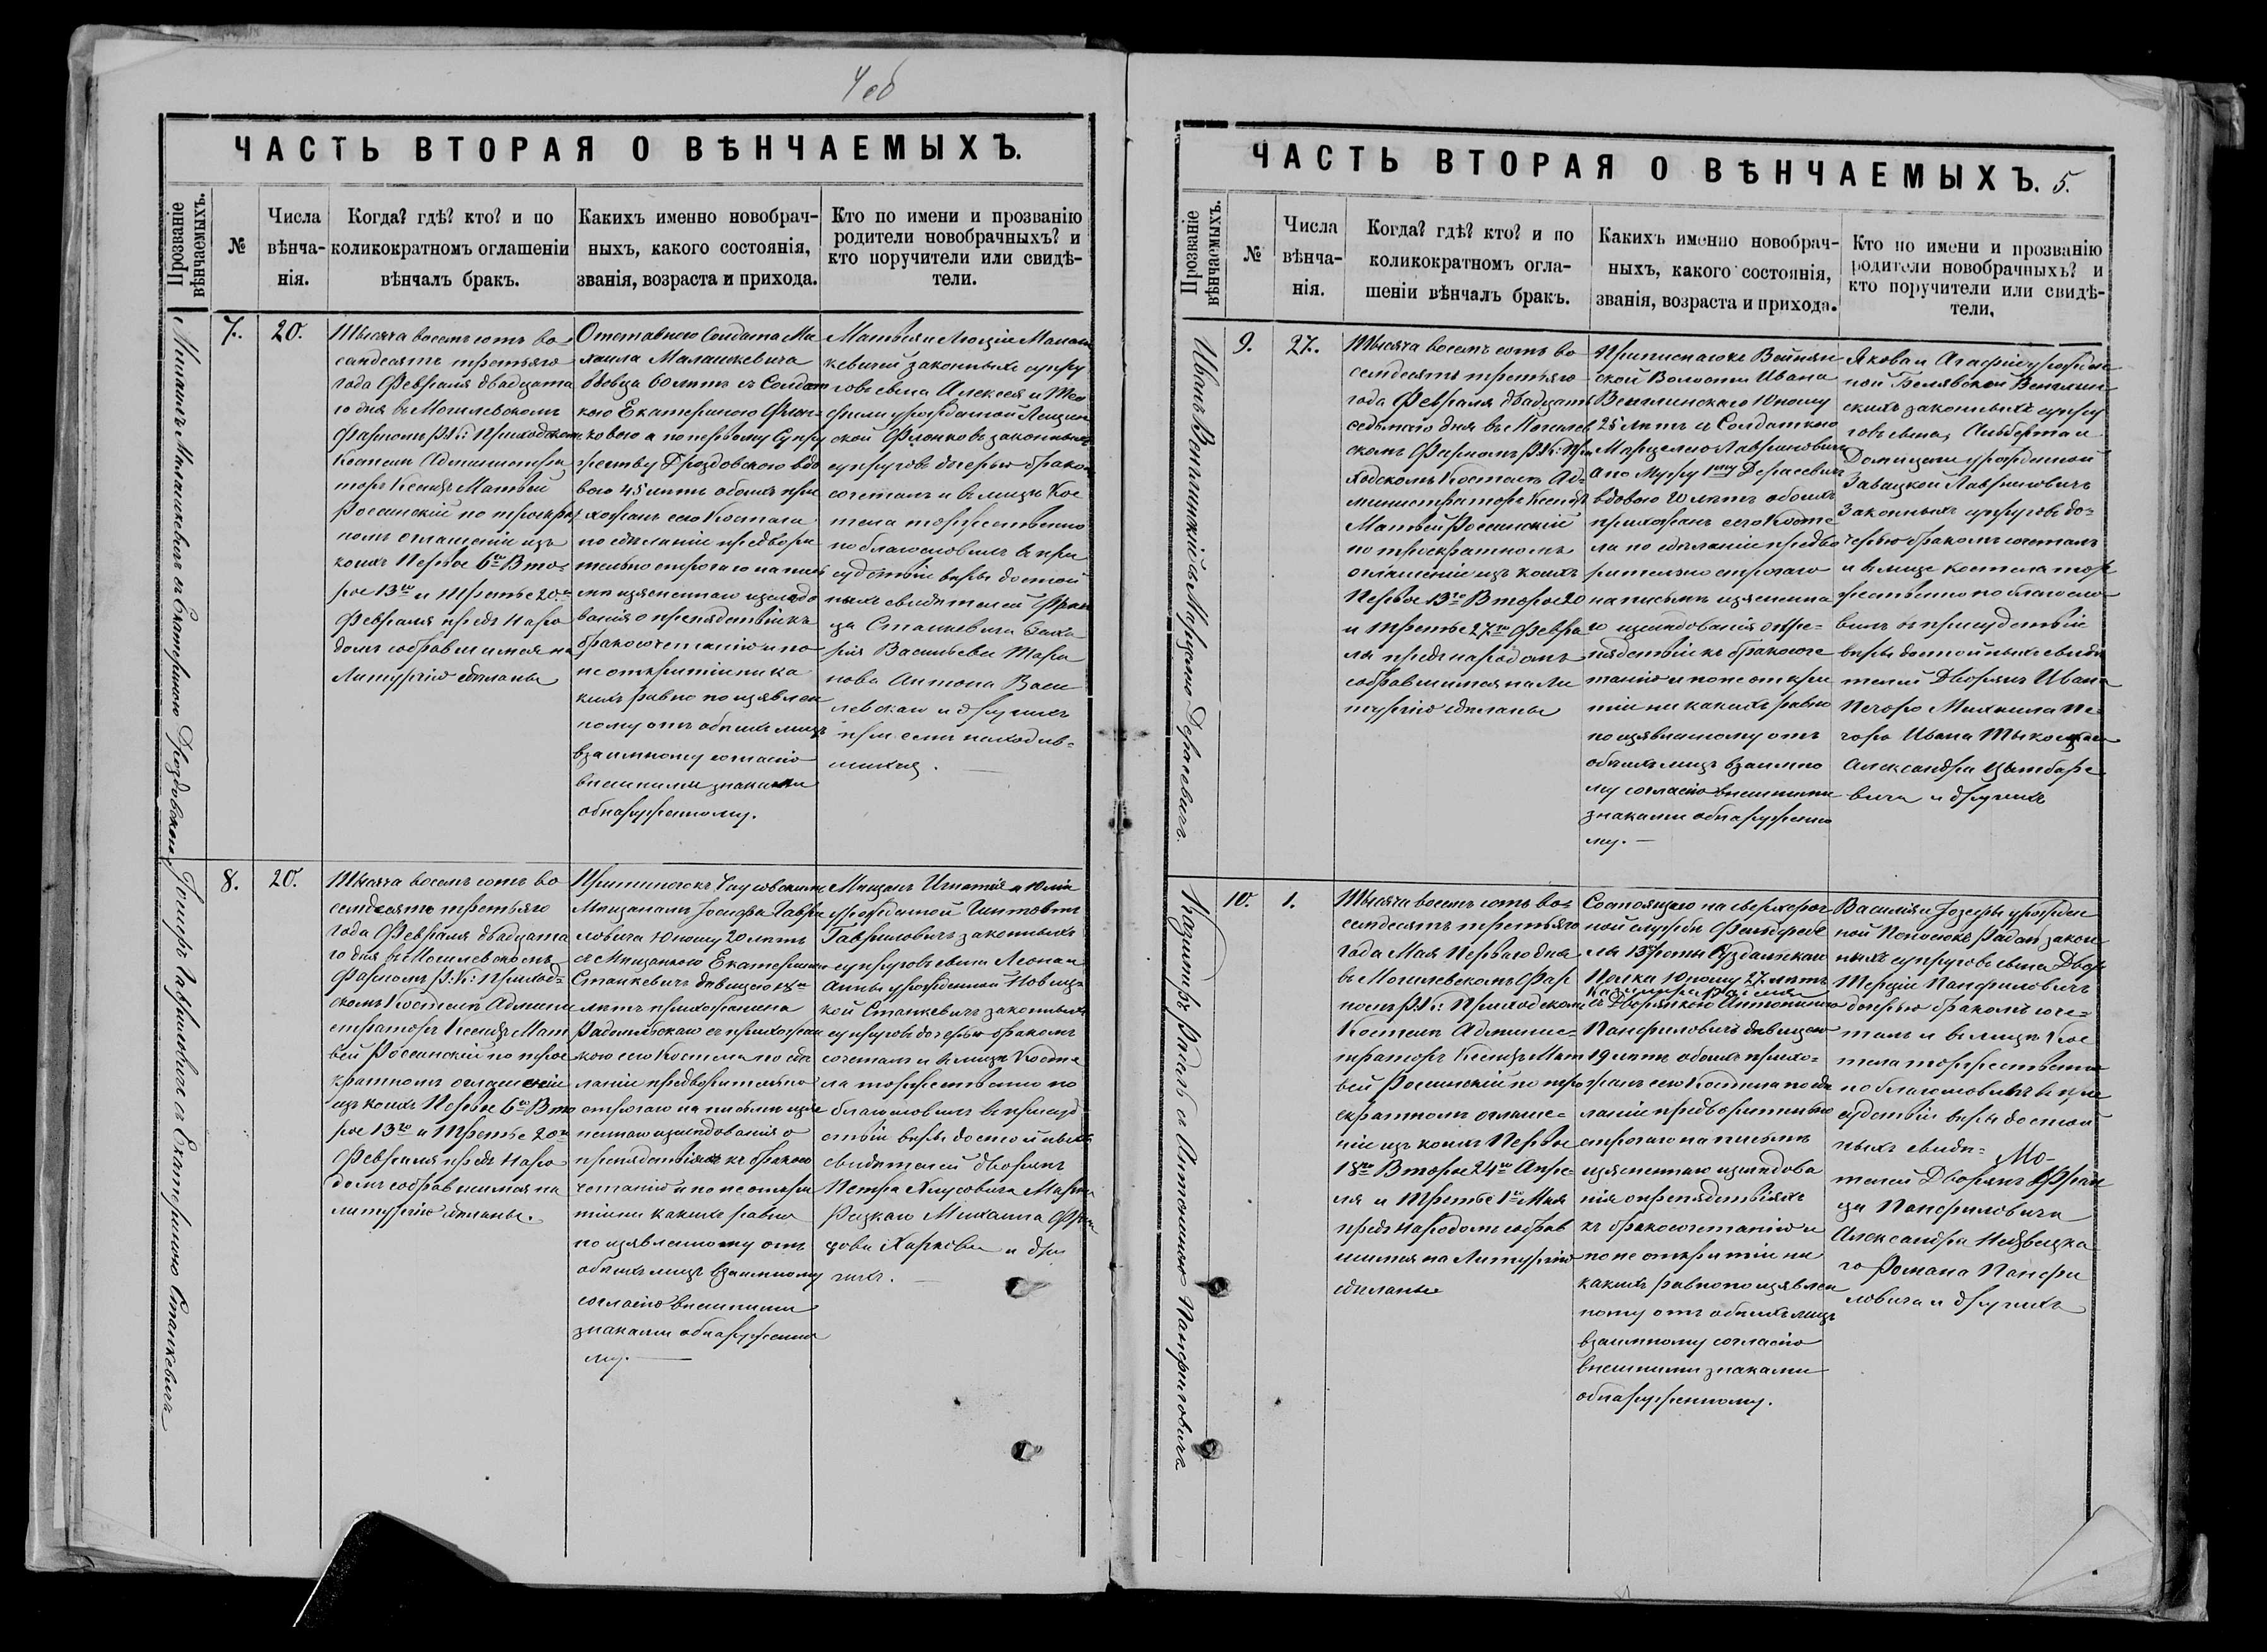 4 об
ЧАСТЬ ВТОРАЯ О ВѢНЧАЕМЫХЪ.
Прозваніе вѣнчаемыхъ.
№
Числа вѣнча-нія.
Когда? гдѣ? кто? и по
коликократномъ оглашеніи
вѣнчалъ бракъ.
Какихъ именно новобрач-
ныхъ, какого состоянія,
званія, возраста и прихода.
Кто по имени и прозванію
родители новобрачныхъ? и
кто поручители или свидѣ-
тели.
Михаилъ Малашкевичъ съ Екатериною Дроздовскою
7.
20.
Тысяча восемь сотъ во-
семдесятъ третьяго
года Февраля двадцата
го дня въ Могилевскомъ
Фарномъ Р: К: Приходскомъ
Костелѣ Администра
торъ Ксендзъ Матвей
Россинскій по троекрат
номъ оглашеніи изъ
коихъ Первое 6го Вто-
рое 13го и Третье 20го
Февраля предъ Наро
домъ собравшимся на
Литургію сделаны
Отставного Солдата Ми
хаила Малашкевича
вдовца 60 лѣтъ съ Солдат
кою Екатериною Флон-
ковою а по первому Супру
жеству Дроздовскою вдо
вою 45 лѣтъ обоихъ при
хожанъ сего Костела
по сделаніи предвори
тельно строгаго на пись
мѣ изъясненнаго изследо
ванія о препядствіи къ
бракосочетанію и по
не открытіи ни ка
кихъ равно по изъявлен
ному отъ обоихъ лицъ
взаимному согласію
внешними знаками
обнаруженному.
Матвея и Люціи Малаш
кевичей законныхъ супру
говъ сына Алексея и Тео
филіи урожденной Лещин
ской Флонковъ законныхъ
супруговъ дочерью бракомъ
сочеталъ и въ лице Кос
тела торжественно
поблагословилъ въ при
судствіи веры достой
ныхъ свидетелей Фран
ца Станкевича Заха
рія Васильева Мари
нова Антона Васи
левскаго и другихъ
при семъ находив-
шихся.
Іосифъ Гавриловичъ съ Екатериною Станкевичъ
8.
20.
Тысяча восемь сотъ во
семдесятъ третьяго
года Февраля двадцата
го дня въ Могилевскомъ
Фарномъ Р: К: Приход-
скомъ Костелѣ Админи
страторъ Ксендзъ Мат
вей Россинскій по трое
кратномъ оглашеніи
изъ коихъ Первое 6го Вто
рое 13го и Третье 20го
Февраля предъ Наро
домъ собравшимся на
литургію сделаны.
Мещанамъ Іосифа Гаври
ловича Юношу 20 лѣтъ
съ Мещанкою Екатериною
Станкевичъ девицею 18ти
лѣтъ прихожанина
Радомльскаго съ прихожан
кою сего Костела по сде
ланіи предворительно
строгаго на письмѣ изъяс
неннаго изследованія о
препядствіяхъ къ бракосо
четанію и по не откры
тіи ни какихъ равно
по изъявленному отъ
обоихъ лицъ взаимному
согласію внешними
знаками обнаруженно
му.
Мещанъ Игнатія и Юліи
Гавриловичъ законныхъ
супруговъ сына Леона и
Анны урожденной Новиц-
кой Станкевичъ законныхъ
супруговъ дочерью бракомъ
сочеталъ и въ лицѣ Косте
ла торжественно по
благословилъ въ присуд
ствіи веры достойныхъ
свидетелей дворянъ
и дру
гихъ.
ЧАСТЬ ВТОРАЯ О ВѢНЧАЕМЫХЪ. 5.
Прозваніе вѣнчаемыхъ.
№
Числа вѣнча-нія.
Когда? гдѣ? кто? и по
коликократномъ огла-
шеніи вѣнчалъ бракъ.
Какихъ именно новобрач-
ныхъ, какого состоянія,
званія, возраста и прихода.
Кто по имени и прозванію
родители новобрачныхъ? и
кто поручители или свидѣ-
тели.
9.
27.
Тысяча восемь сотъ во
семдесятъ третьяго
года Февраля двадцать
седьмаго дня въ Могилев
скомъ Фарномъ Р: К: При
ходскомъ Костелѣ Ад-
министраторъ Ксендзъ
Матвей Россинскій
по троекратномъ
оглашеніи изъ коихъ
Первое 13го Второе 20
и Третье 27го Февра
ля предъ народомъ
собравшимся на Ли
тургію сделаны
ской Волости Ивана
Юношу
25 лѣтъ съ Солдаткою
Марцелею Лавриновичъ
а по Мужу 1му Дерасевичъ
вдовою 20 лѣтъ обоихъ
прихожанъ сего Косте
ла по сделаніи предво
рительно строгаго
на письмѣ изъясненна
го изследованія о пре-
пядствіи къ бракосоче
танію и по не откры
тіи ни какихъ равно
по изъявленному отъ
обоихъ лицъ взаимно
му согласію внешними
знаками обнаруженно
му.
Якова и Агафіи урожден
ной Белявской
скихъ законныхъ супру
говъ сына, Альберта и
Доминики урожденной
Завацкой Лавриновичъ
законныхъ супруговъ до-
черью бракомъ сочеталъ
и въ лице костела тор
жественно поблагосло
вилъ въ присудствіи
веры достойныхъ свиде
телей Дворянъ Ивана
Печоро Михаила Пе-
чоро Ивана
Александра
вича и другихъ
Казимиръ Радабъ съ Антониною Панфиловичъ
10.
1.
Тысяча восемь сотъ во-
семдесятъ третьяго
года Мая Перваго дня
въ Могилевскомъ Фар
номъ Р: К: Приходскомъ
Костелѣ Админис-
траторъ Ксендзъ Мат
вей Россинскій по тро
екратномъ оглаше-
ніи изъ коихъ Первое
18го Второе 24го Апре-
ля и Третье 1го Мая
предъ Народомъ собрав
шимся на Литургію
сделаны
Состоящаго на сверхсроч
ной службѣ Фельдфебе
ля 13 роты Суздальскаго
Полка Юношу 27 лѣтъ
съ Дворянкою Антониною
Панфиловичъ девицею
19 лѣтъ обоихъ прихо-
жанъ сего Костела по сде
ланіи предворительно
строгаго на письмѣ
изъясненнаго изследова
нія о препядствіяхъ
къ бракосочетанію и
по не открытіи ни
какихъ равно по изъявлен
ному отъ обоихъ лицъ
взаимному согласію
внешними знаками
обнаруженному.
Василія и Іозефы урожден
ной Радабъ закон
ныхъ супруговъ сына Двор
Панфиловичъ
дочерью бракомъ соче-
талъ и въ лицѣ Кос
тела торжественно
поблагословилъ въ при
судствіи веры достой
ныхъ свиде-
телей Дворянъ Фран
ца Панфиловича
Александра Недзвецка
го Романа Панфи
ловича и другихъ